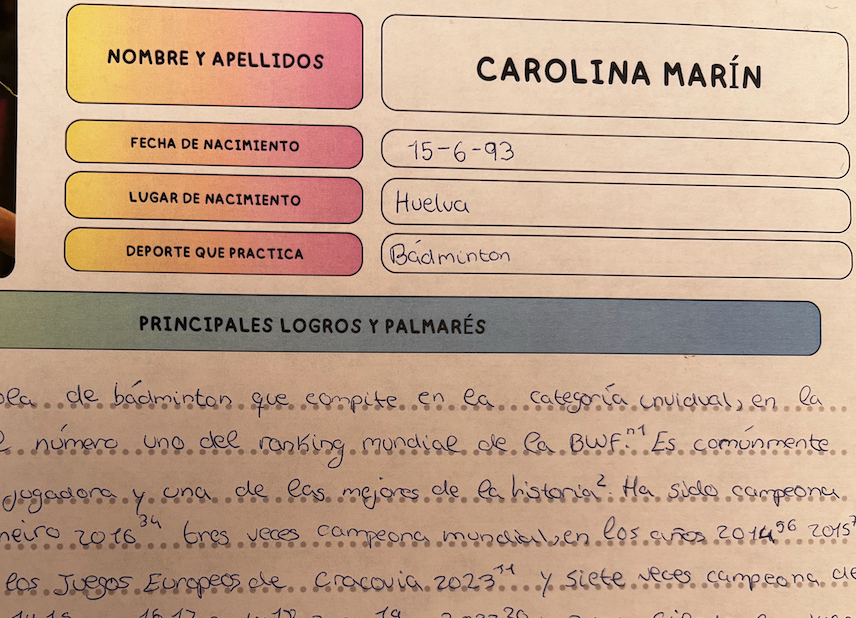 NOMBRE Y APELLIDOS
CAROLINA MARÍN
FECHA DE NACIMIENTO
15-6-93
LUGAR DE NACIMIENTO
Huelva
DEPORTE QUE PRACTICA
Bádminton
PRINCIPALES LOGROS Y PALMARÉS
de bádminton que compite en la categoría unvidual, en la
número uno del ranking mundial de la BWF.n1 Es comúnmente
jugadora y una de las mejores de la historia2. Ha sido campeona
neiro 2016 34 tres veces campeona mundial, en los años 2014 56 2015 7
los Juegos Europeos de Cracovia 2023 11 y siete veces campeona de